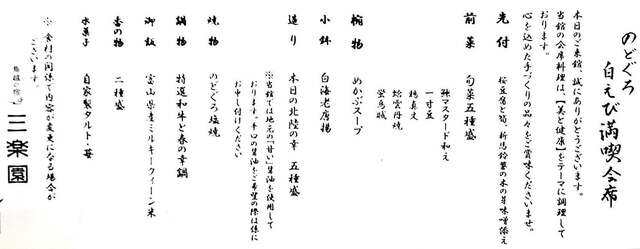 のどぐろ
白えび満喫会席
本日のご来館、誠にありがとうございます。
当館の会席料理は、【美と健康】をテーマに調理して
おります。
心を込めた手づくりの品々をご賞味くださいませ。
先付 桜豆腐と筍、新馬鈴薯の木の芽味噌添え
前菜 旬菜五種盛
辣マスタード和え
一寸豆
楊真丈
蛤雲丹焼
蛍烏賊
椀物 めかぶスープ
小鉢 白海老唐揚
造り 本日の北陸の幸 五種盛
※当館では地元の「甘い」醤油を使用して
おります。辛口の醤油をご希望の際は係に
お申し付けください
焼物 のどぐろ塩焼
鍋物 特選和牛と春の幸鍋
御飯 富山県産ミルキークィーン米
香の物 二種盛
水菓子 自家製タルト・苺
※ 食材の関係で内容が変更になる場合が
ございます。
三楽園